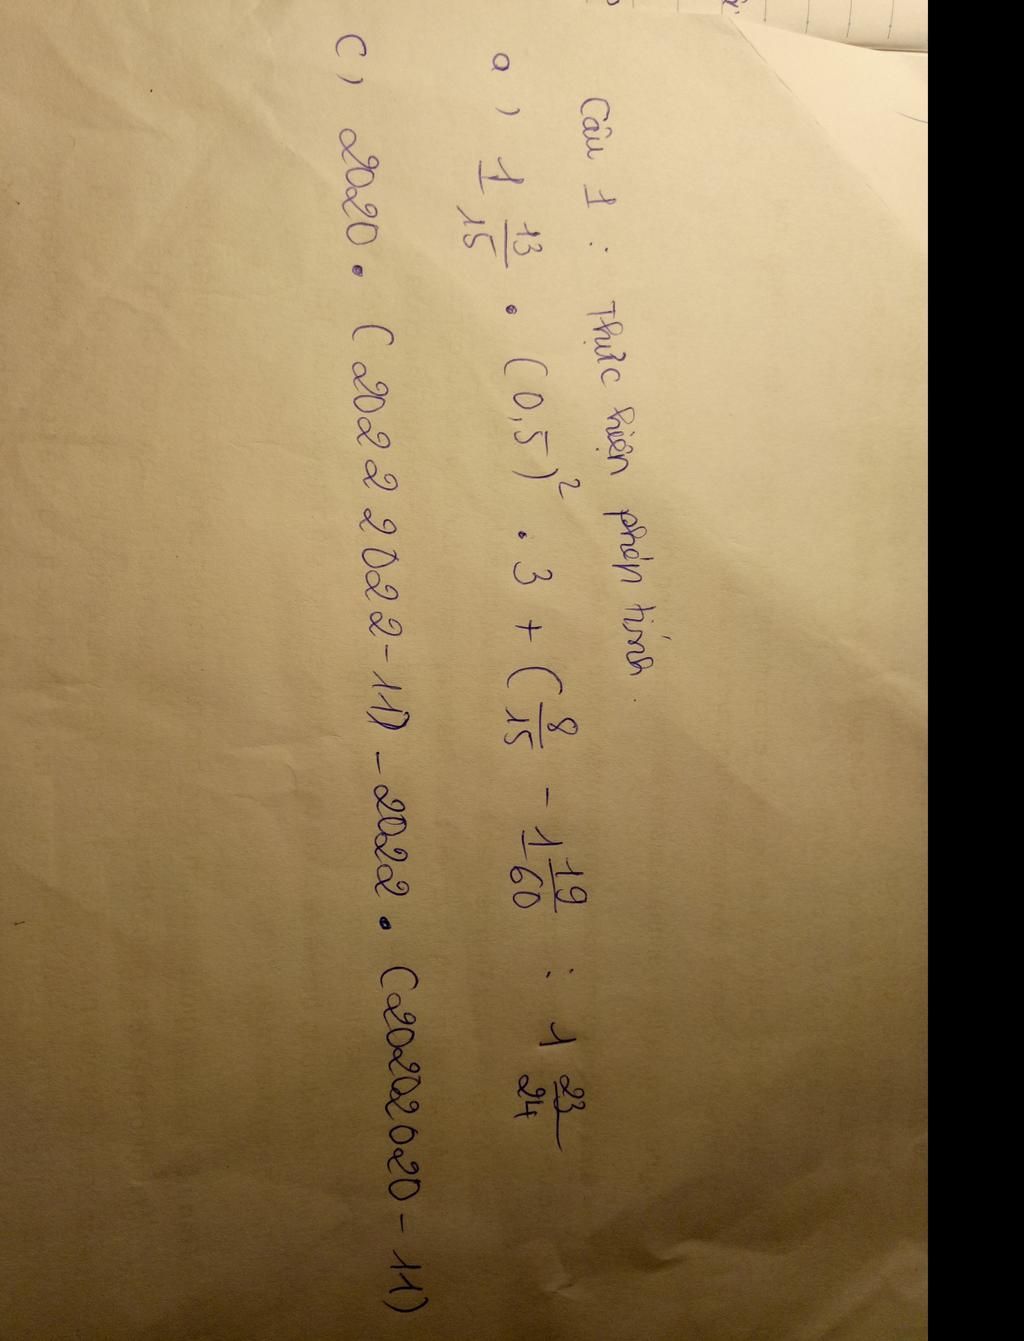 Câu 1 : Thực hiện phép tính.
a, 1 13/15 . (0,5)² . 3 + ( 8/15 - 1 19/60 : 1 23/24
C, 2020 . ( 20222022 - 11) - 2022 . (20202020 - 11)